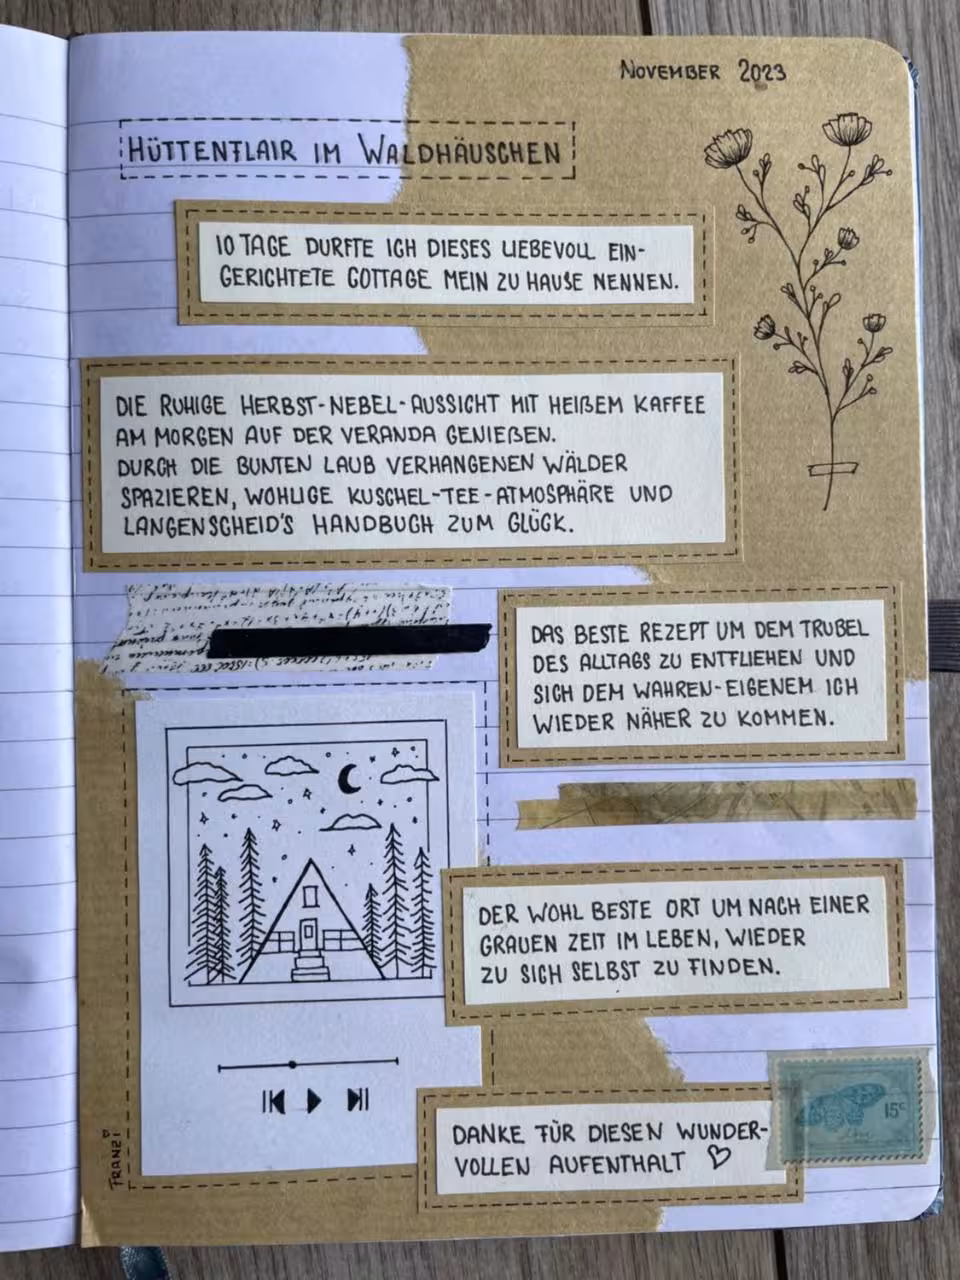 November 2023
Hüttenflair im Waldhäuschen
10 Tage durfte ich dieses liebevoll ein-
gerichtete Cottage mein zu Hause nennen.
Die ruhige Herbst-Nebel-Aussicht mit heißem Kaffee
am Morgen auf der Veranda genießen.
Durch die bunten Laub verhangenen Wälder
spazieren, wohlige Kuschel-Tee-Atmosphäre und
Langenscheid's Handbuch zum Glück.
Das beste Rezept um dem Trubel
des Alltags zu entfliehen und
sich dem wahren-eigenem Ich
wieder näher zu kommen.
Der wohl beste Ort um nach einer
grauen Zeit im Leben, wieder
zu sich selbst zu finden.
Danke für diesen wunder-
vollen Aufenthalt ♡
15c
Franzi